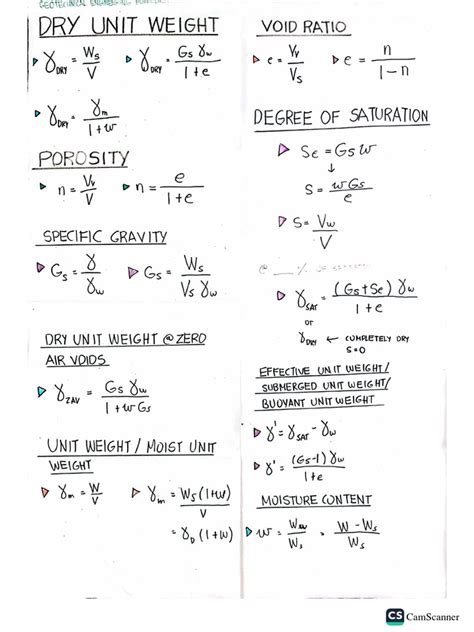 GEOTECHNICAL ENGINEERING FORMULA
DRY UNIT WEIGHT
γDRY = Ws/V γDRY = Gs γw / 1+e
γDRY = γm / 1+w
POROSITY
n = Vv/V n = e / 1+e
SPECIFIC GRAVITY
Gs = γ/γw Gs = Ws / Vs γw
DRY UNIT WEIGHT @ ZERO
AIR VOIDS
γZAV = Gs γw / 1+wGs
UNIT WEIGHT / MOIST UNIT
WEIGHT
γm = W/V γm = Ws(1+w) / V
= γD (1+w)
VOID RATIO
e = Vv/Vs e = n / 1-n
DEGREE OF SATURATION
Se = Gs w
↓
S = wGs / e
S = Vw / V
γSAT = (Gs+Se) γw / 1+e
or
γDRY ← COMPLETELY DRY
S=0
EFFECTIVE UNIT WEIGHT/
SUBMERGED UNIT WEIGHT/
BUOYANT UNIT WEIGHT
γ' = γSAT - γw
γ' = (Gs-1) γw / 1+e
MOISTURE CONTENT
w = Ww/Ws = W - Ws / Ws
CS CamScanner